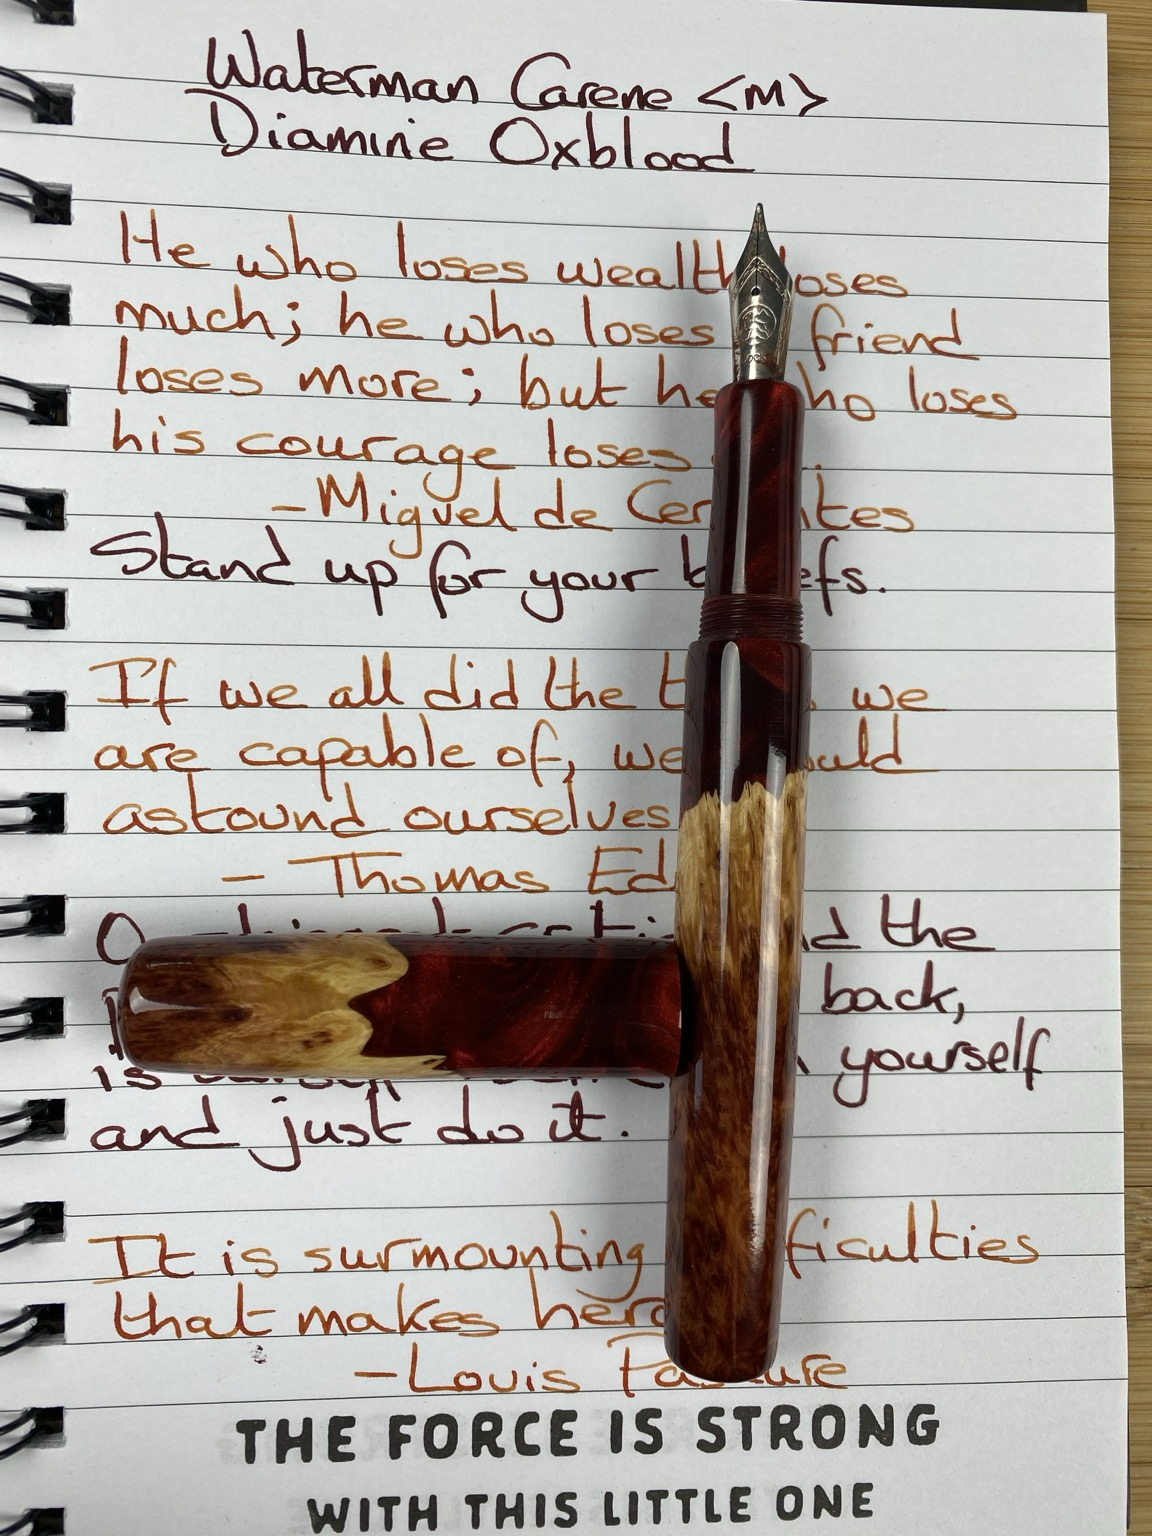 Waterman Carene <M>
Diamine Oxblood
He who loses wealth loses
much; he who loses friend
loses more; but he who loses
his courage loses
-Miguel de Cervantes
Stand up for your beliefs.
If we all did the we
are capable of, we would
astound ourselves
- Thomas Ed
the
back,
is yourself
and just do it.
It is surmounting difficulties
that makes
-Louis Pasture
THE FORCE IS STRONG
WITH THIS LITTLE ONE